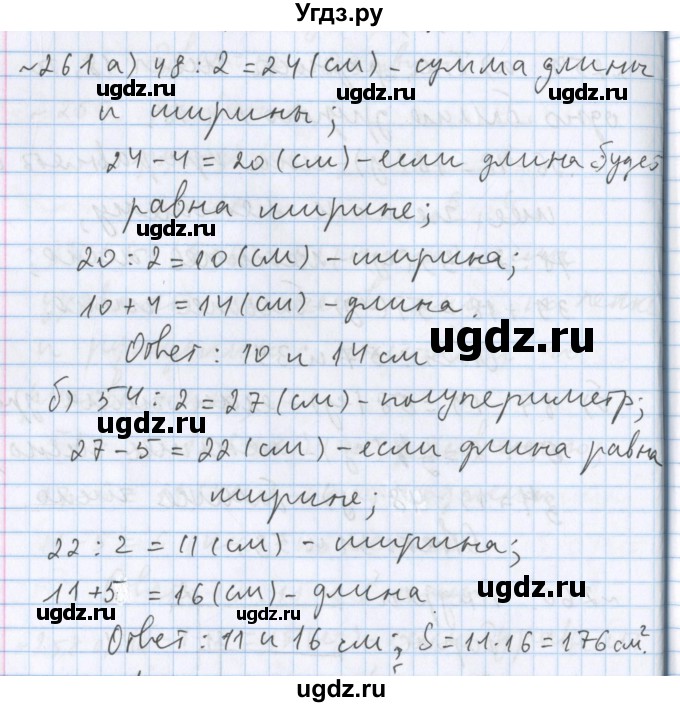 Угдз.ру
№261 а) 48 : 2 = 24 (см) – сумма длины
ugdz.ru ugdz.ru ugdz.ru
и ширины;
24 – 4 = 20 (см) – если длина будет
равна ширине;
ugdz.ru
20 : 2 = 10 (см) – ширина;
10 + 4 = 14 (см) – длина.
ugdz.ru
Ответ: 10 и 14 см
б) 54 : 2 = 27 (см) – полупериметр;
ugdz.ru
27 – 5 = 22 (см) – если длина равна
ширине;
22 : 2 = 11 (см) – ширина;
ugdz.ru
11 + 5 = 16 (см) – длина
ugdz.ru ugdz.ru
Ответ: 11 и 16 см; S = 11 · 16 = 176 см².
ugdz.ru